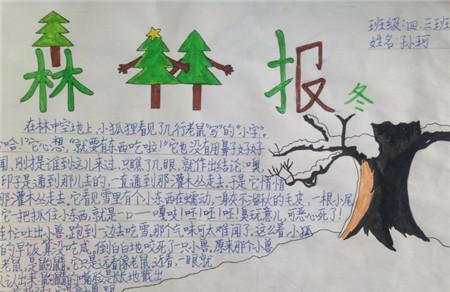 班级:四.三班
姓名:孙珂
森林报
冬
在林中空地上,小狐狸看见了几行老鼠"写"的"小字"。
哈!"它心想,"就要有东西吃啦!"它也没有用鼻子好好
闻,刚才是谁到这儿来过,只瞧了几眼,就作出结论:噢,
印子是通到那儿去的,一直通到那灌木丛边去,于是它悄悄
那灌木丛走去,它看见雪里有个小东西在蠕动,一身灰不溜秋的毛皮,一根小尾
它一把抓住小东西就是一口——嘎吱!呸!呸!呸!臭玩意儿,可恶心死了!
连忙吐出小兽,跑到一边去吃雪,那个气味可太难闻了,这么着,小狐
的早饭算没吃成,倒白白地咬死了一只小兽,原来那个小兽
老鼠,是鼩鼱,它只是远看像老鼠,近看,一眼就
认出来